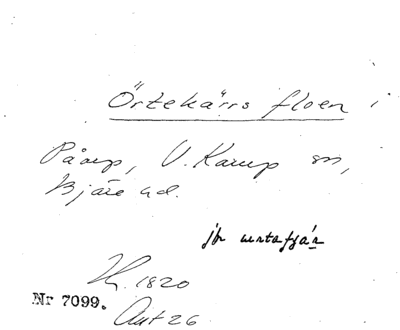 Örtekärrs floen i
Påarp, V. Karup sn,
Bjäre hd.
jfr urtafjáa
H. 1820
Nr 7099.
Akt 26